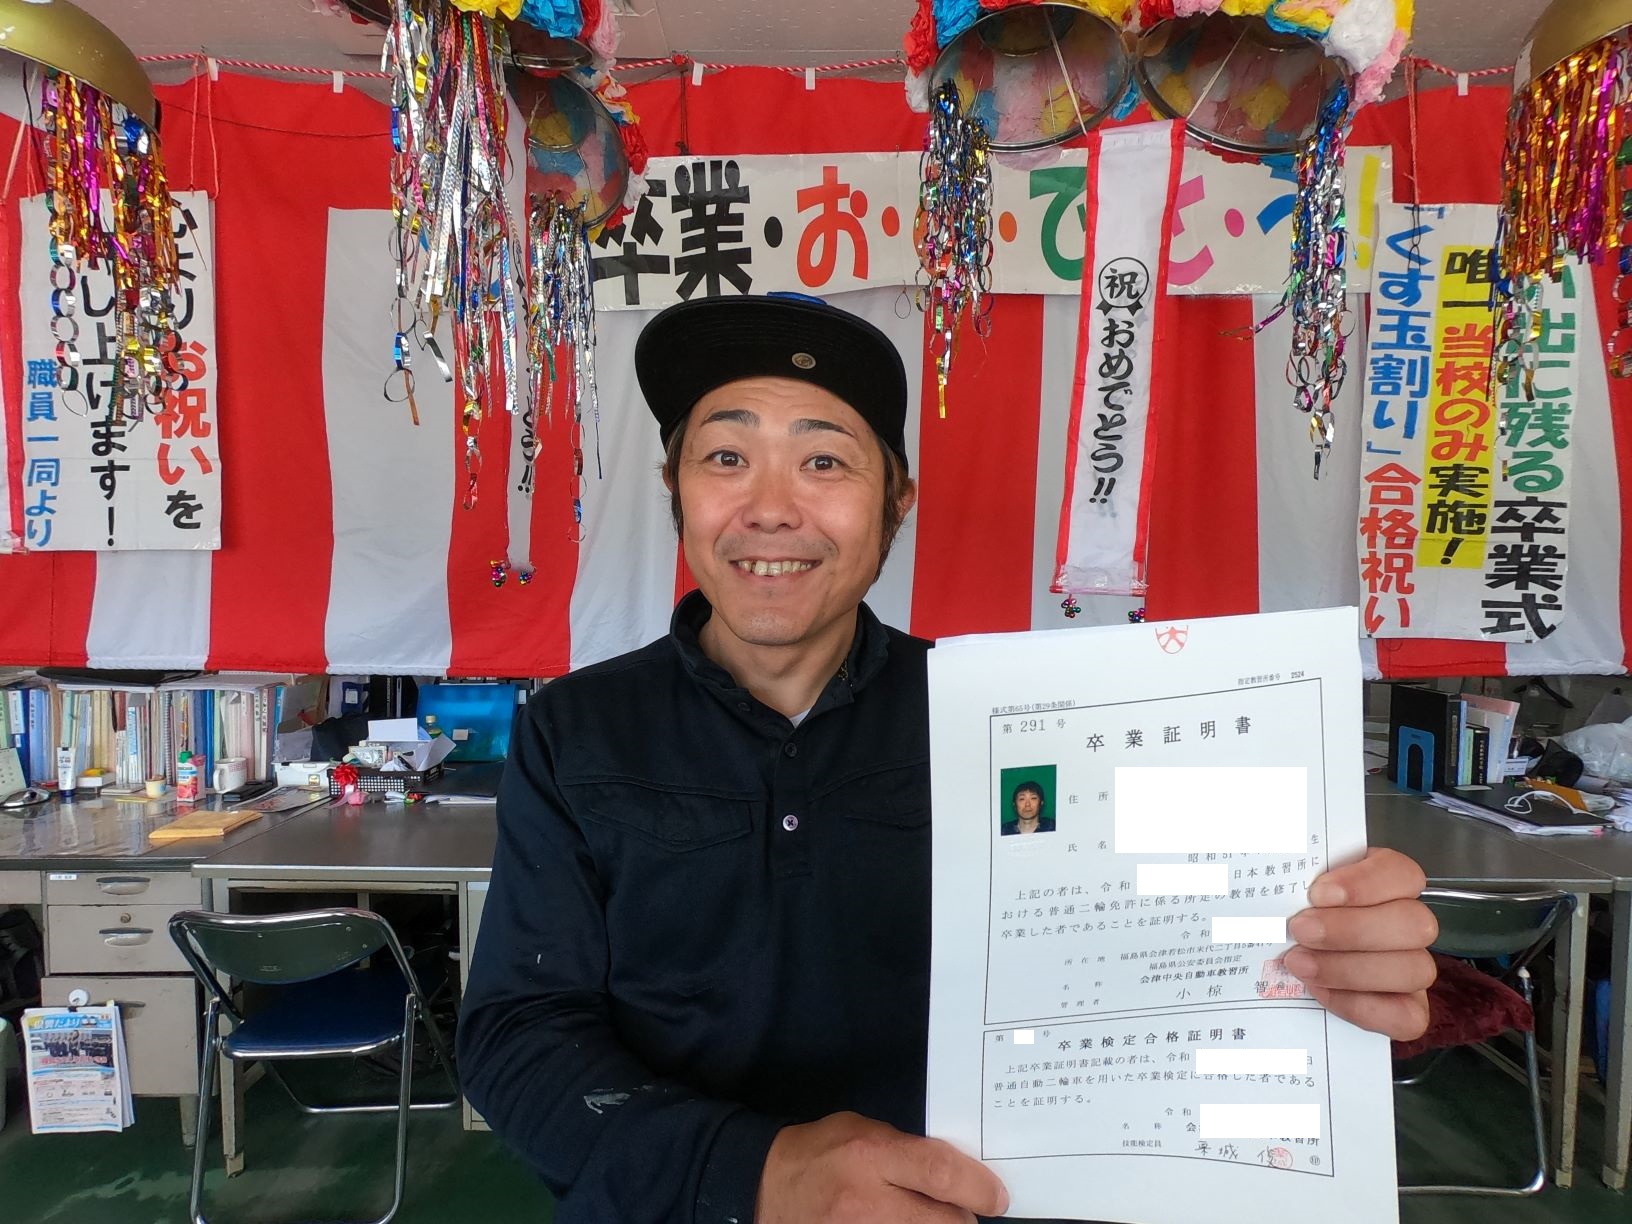 卒業・お・・で・と・う!
祝
おめでとう!!
心より
お祝いを
し上げます!
職員一同より
出に残る卒業式
唯一当校のみ実施!
「くす玉割り」合格祝い
指定教習所番号 2524
様式第65号(第29条関係)
第 291 号
卒業証明書
住所
氏名
昭和51年
生
上記の者は、令和
日本教習所に
おける普通二輪免許に係る所定の教習を修了し
卒業した者であることを証明する。
令和
所在地 福島県会津若松市米代二丁目5番
福島県公安委員会指定
名称 会津中央自動車教習所
管理者 小椋 智
第 号
卒業検定合格証明書
上記卒業証明書記載の者は、令和
日
普通自動二輪車を用いた卒業検定に合格した者である
ことを証明する。
令和
名称 会
教習所
技能検定員
印